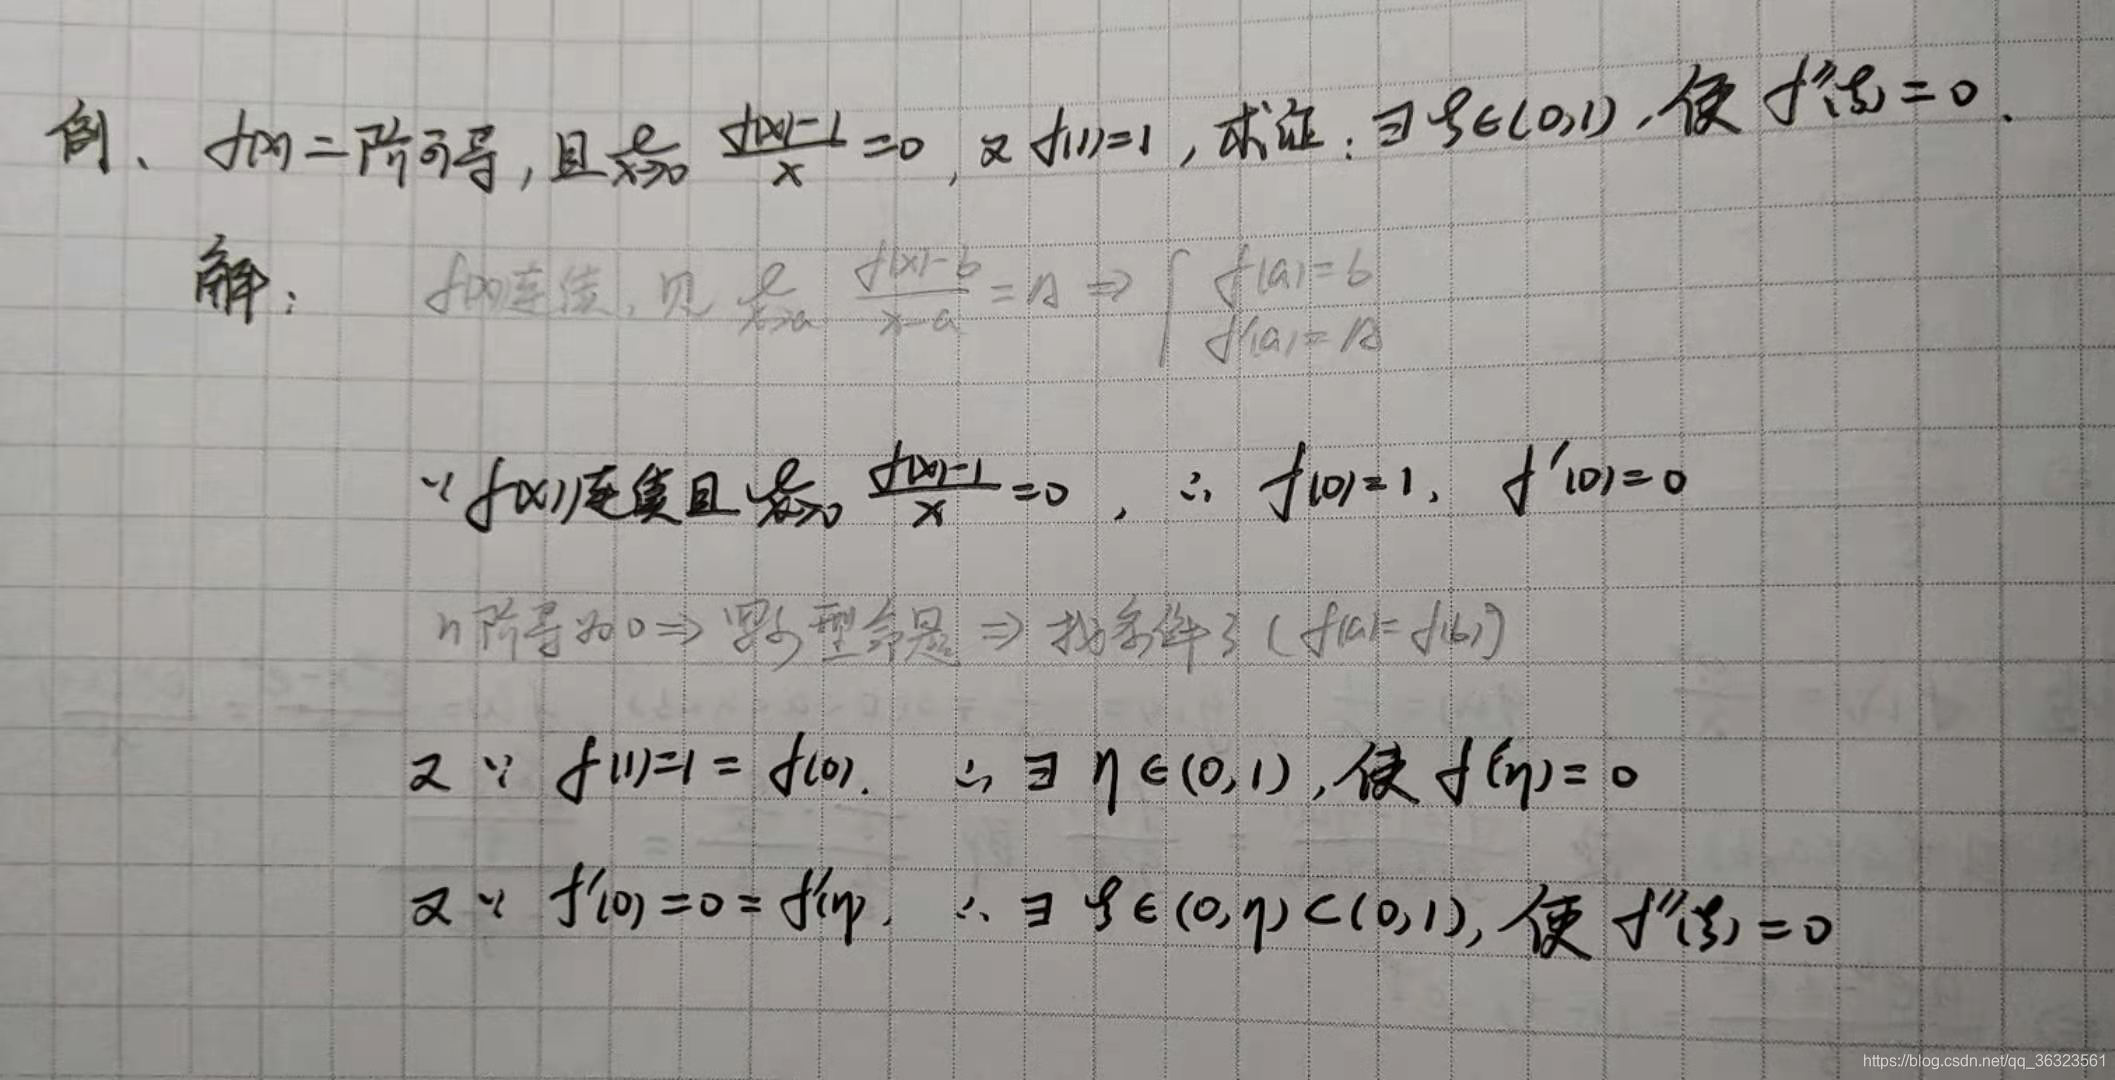 例、f(x)二阶可导,且lim x→0 (f(x)-1)/x =0,又f(1)=1,求证:∃ξ∈(0,1),使f''(ξ)=0.
解: f(x)连续,见 lim x→a (f(x)-b)/(x-a) =A ⇒ { f(a)=b
f'(a)=A
∵ f(x)连续且 lim x→0 (f(x)-1)/x =0, ∴ f(0)=1, f'(0)=0
n阶导为0⇒罗尔型命题⇒找条件3(f(a)=f(b))
又∵ f(1)=1=f(0). ∴ ∃ η∈(0,1),使f'(η)=0
又∵ f'(0)=0=f'(η), ∴ ∃ ξ∈(0,η)⊂(0,1),使f''(ξ)=0
https://blog.csdn.net/qq_36323561